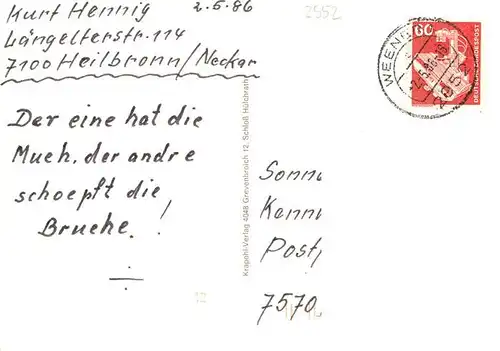 Kurt Hennig 2.5.86
Längelterstr.114
7100 Heilbronn/Neckar
2552
Der eine hat die
Mueh, der andre
schoepft die
Bruehe.!
Krapohl-Verlag 4048 Grevenbroich 12, Schloß Hülchrath
60
DEUTSCHE BUNDESPOST
WEENE
2.5.86
2952
Sonn
Kenn
Post
7570